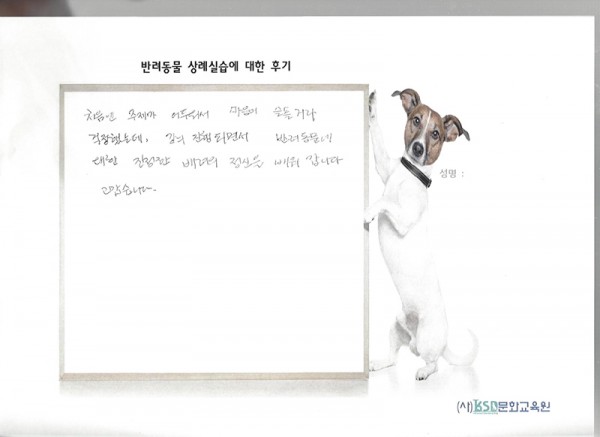 반려동물 상례실습에 대한 후기
처음엔 주제가 어두워서 마음이
걱정했는데, 강의 진행되면서 반려동물에
대한 진정한 배려의 정신을 배워 갑니다
고맙습니다.
성명 :
(사)KSD문화교육원